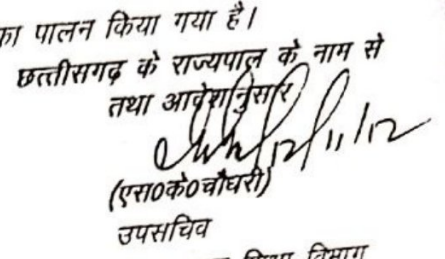 का पालन किया गया है।
छत्तीसगढ़ के राज्यपाल के नाम से
तथा आदेशानुसार
12/11/12
(एस0के0चौधरी)
उपसचिव
विभाग